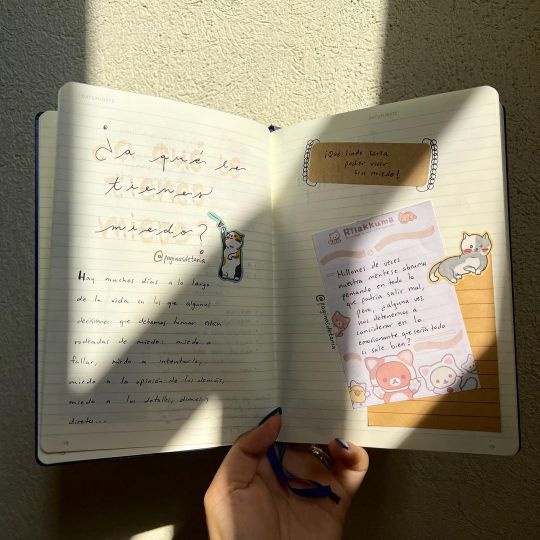 ¿a qué le
tienes
miedo?
@paginasdetania
Hay muchos días a lo largo
de la vida en los que algunas
decisiones que debemos tomar están
rodeadas de miedo: miedo a
fallar, miedo a intentarlo,
miedo a la opinión de los demás,
miedo a los detalles, dimes y
diretes...
¡Qué lindo sería
poder vivir
sin miedo!
Rilakkuma
Millones de veces
nuestra mente se abruma
pensando en todo lo
que podría salir mal,
pero, ¿alguna vez
nos detenemos a
considerar en lo
emocionante que sería todo
si sale bien?
@paginasdetania